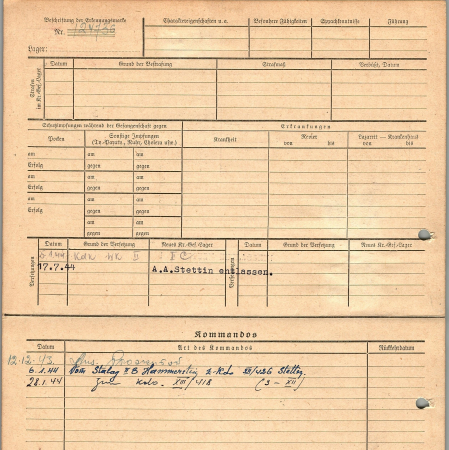 Beschriftung der Erkennungsmarke
Charaktereigenschaften u. a.
Besondere Fähigkeiten
Sprachkenntnisse
Führung
Nr.
Lager:
Strafen im Kr.-Gef.-Lager
Datum
Grund der Bestrafung
Strafmaß
Verbüßt, Datum
Schutzimpfungen während der Gefangenschaft gegen
Erkrankungen
Pocken
Sonstige Impfungen
(Ty.-Paraty., Ruhr, Cholera usw.)
Krankheit
Revier
von bis
Lazarett — Krankenhaus
von bis
am am am
Erfolg gegen gegen
am am am
Erfolg gegen gegen
am am am
Erfolg gegen gegen
am am
gegen gegen
Versetzungen
Datum
Grund der Versetzung
Neues Kr.-Gef.-Lager
Versetzungen
Datum
Grund der Versetzung
Neues Kr.-Gef.-Lager
II C
17.7.44 A.A.Stettin entlassen.
Kommandos
Datum
Art des Kommandos
Rückkehrdatum
12.12.43.
6.1.44 Vom Stalag II B Hammerstein z. Kdo
28.1.44 zum Kdo. XIII/418 (3 - XII)